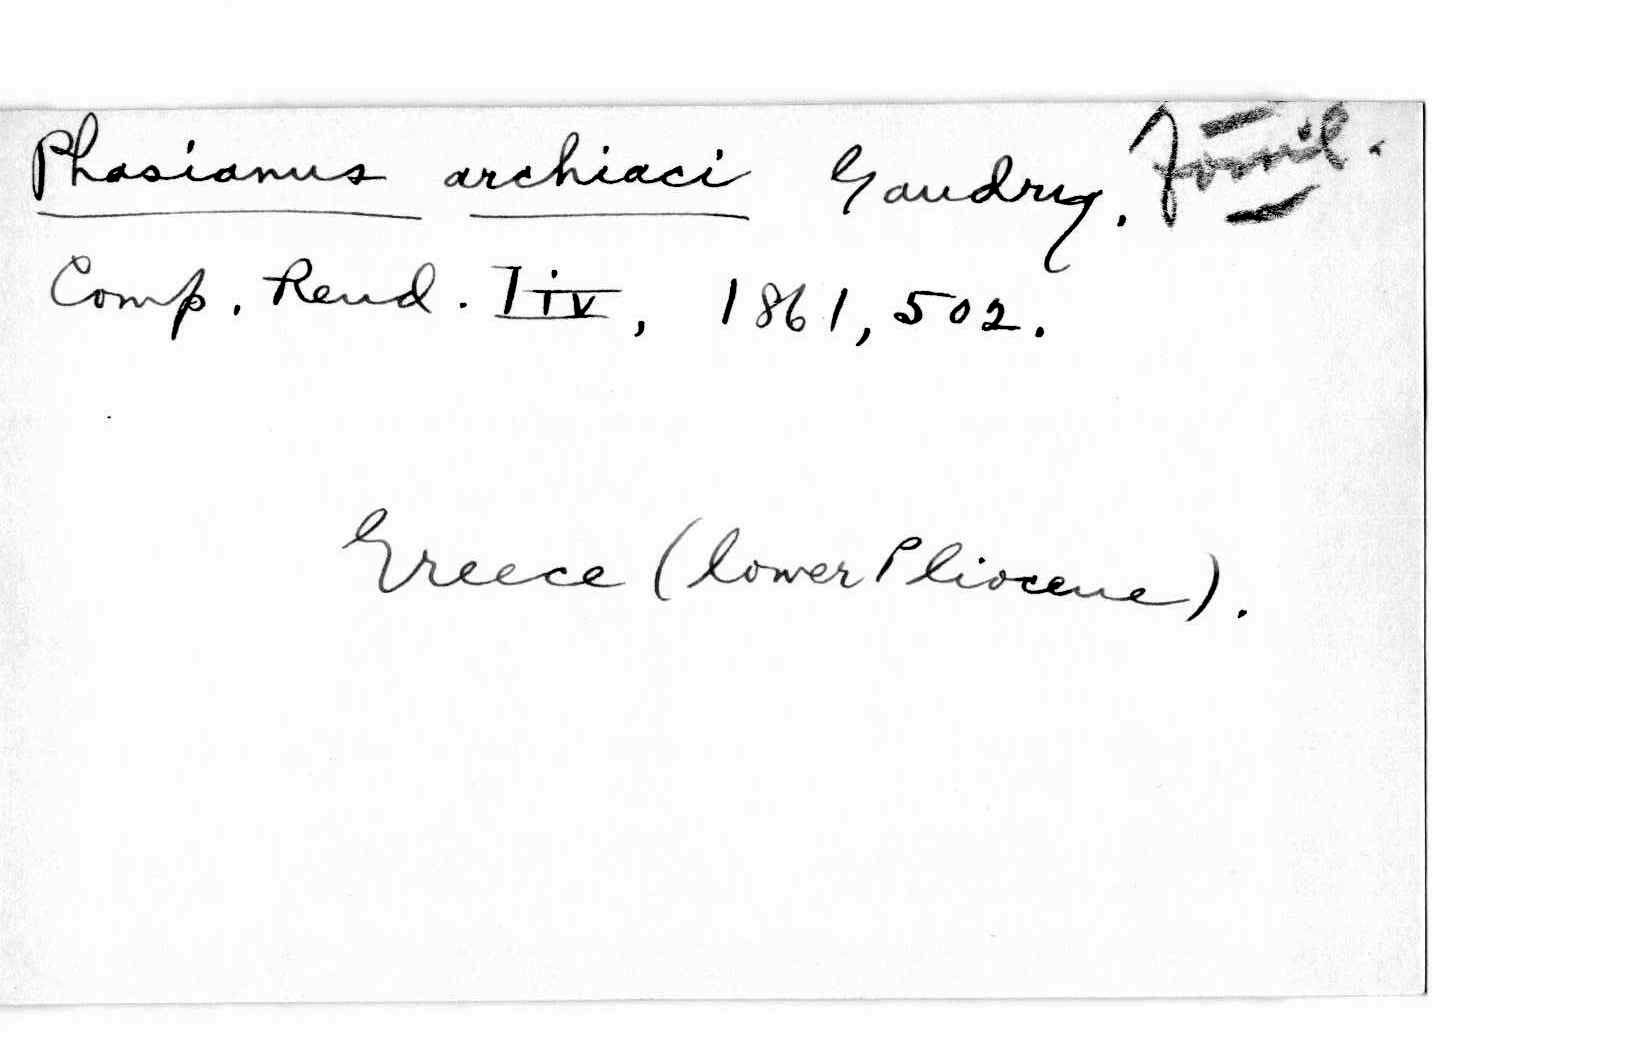 Phasianus archiaci Gaudry. Fossil.
Comp. Rend. Liv, 1861, 502.
Greece (lower Pliocene).